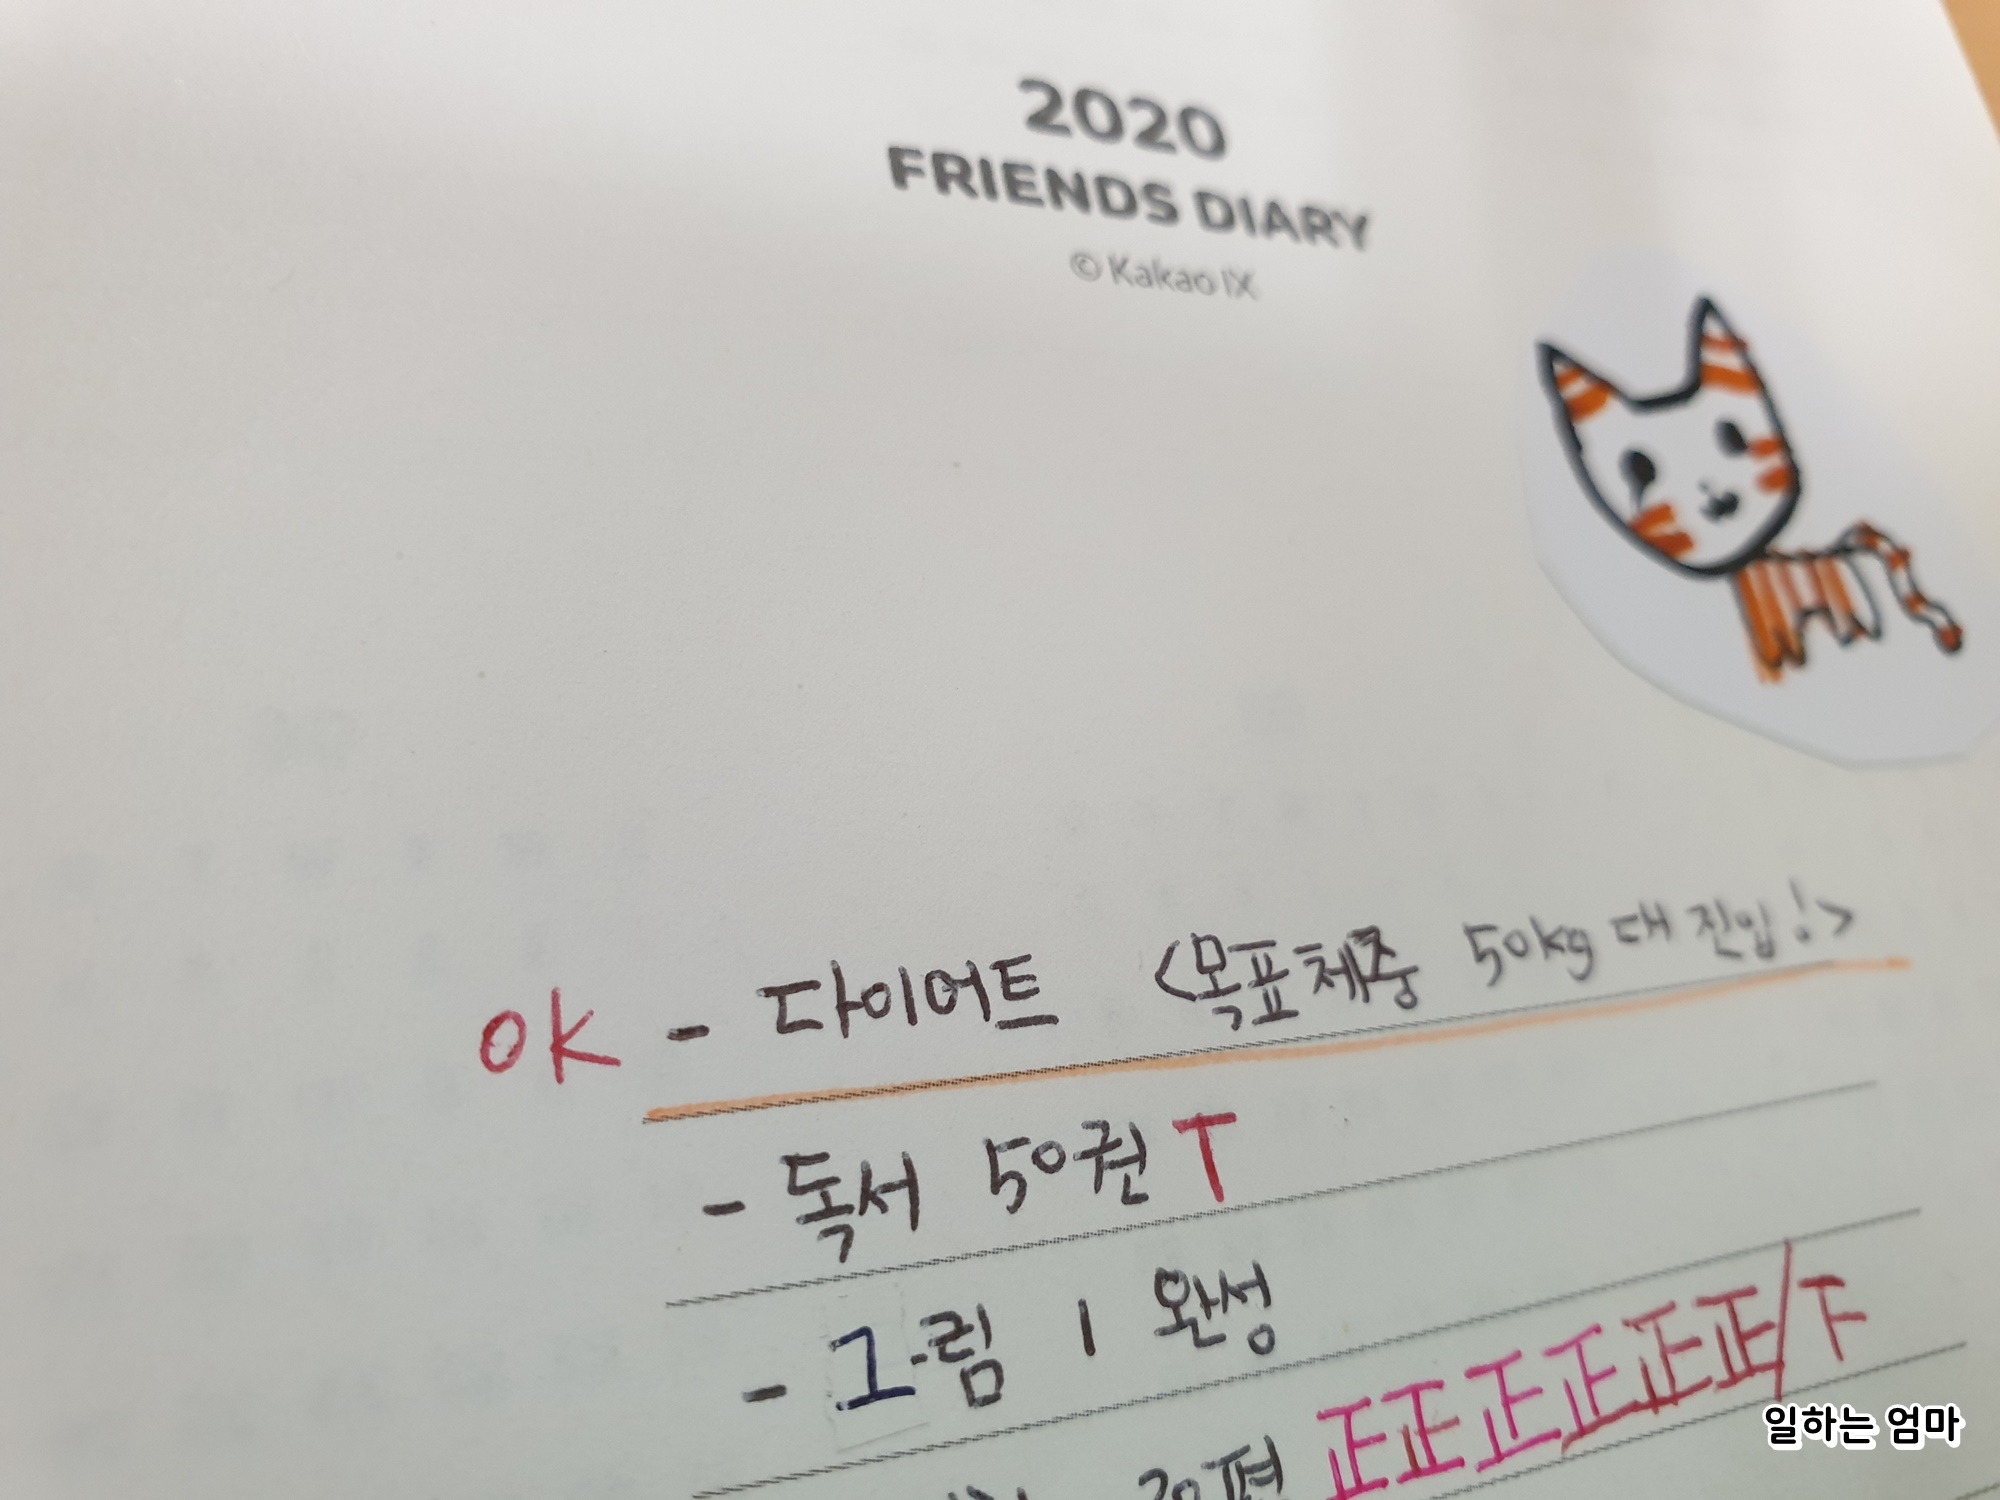 2020
FRIENDS DIARY
© Kakao IX
OK - 다이어트 <목표체중 50kg 대 진입!>
- 독서 50권 T
- 그림 1 완성
30편 正正正正正正/下
일하는 엄마